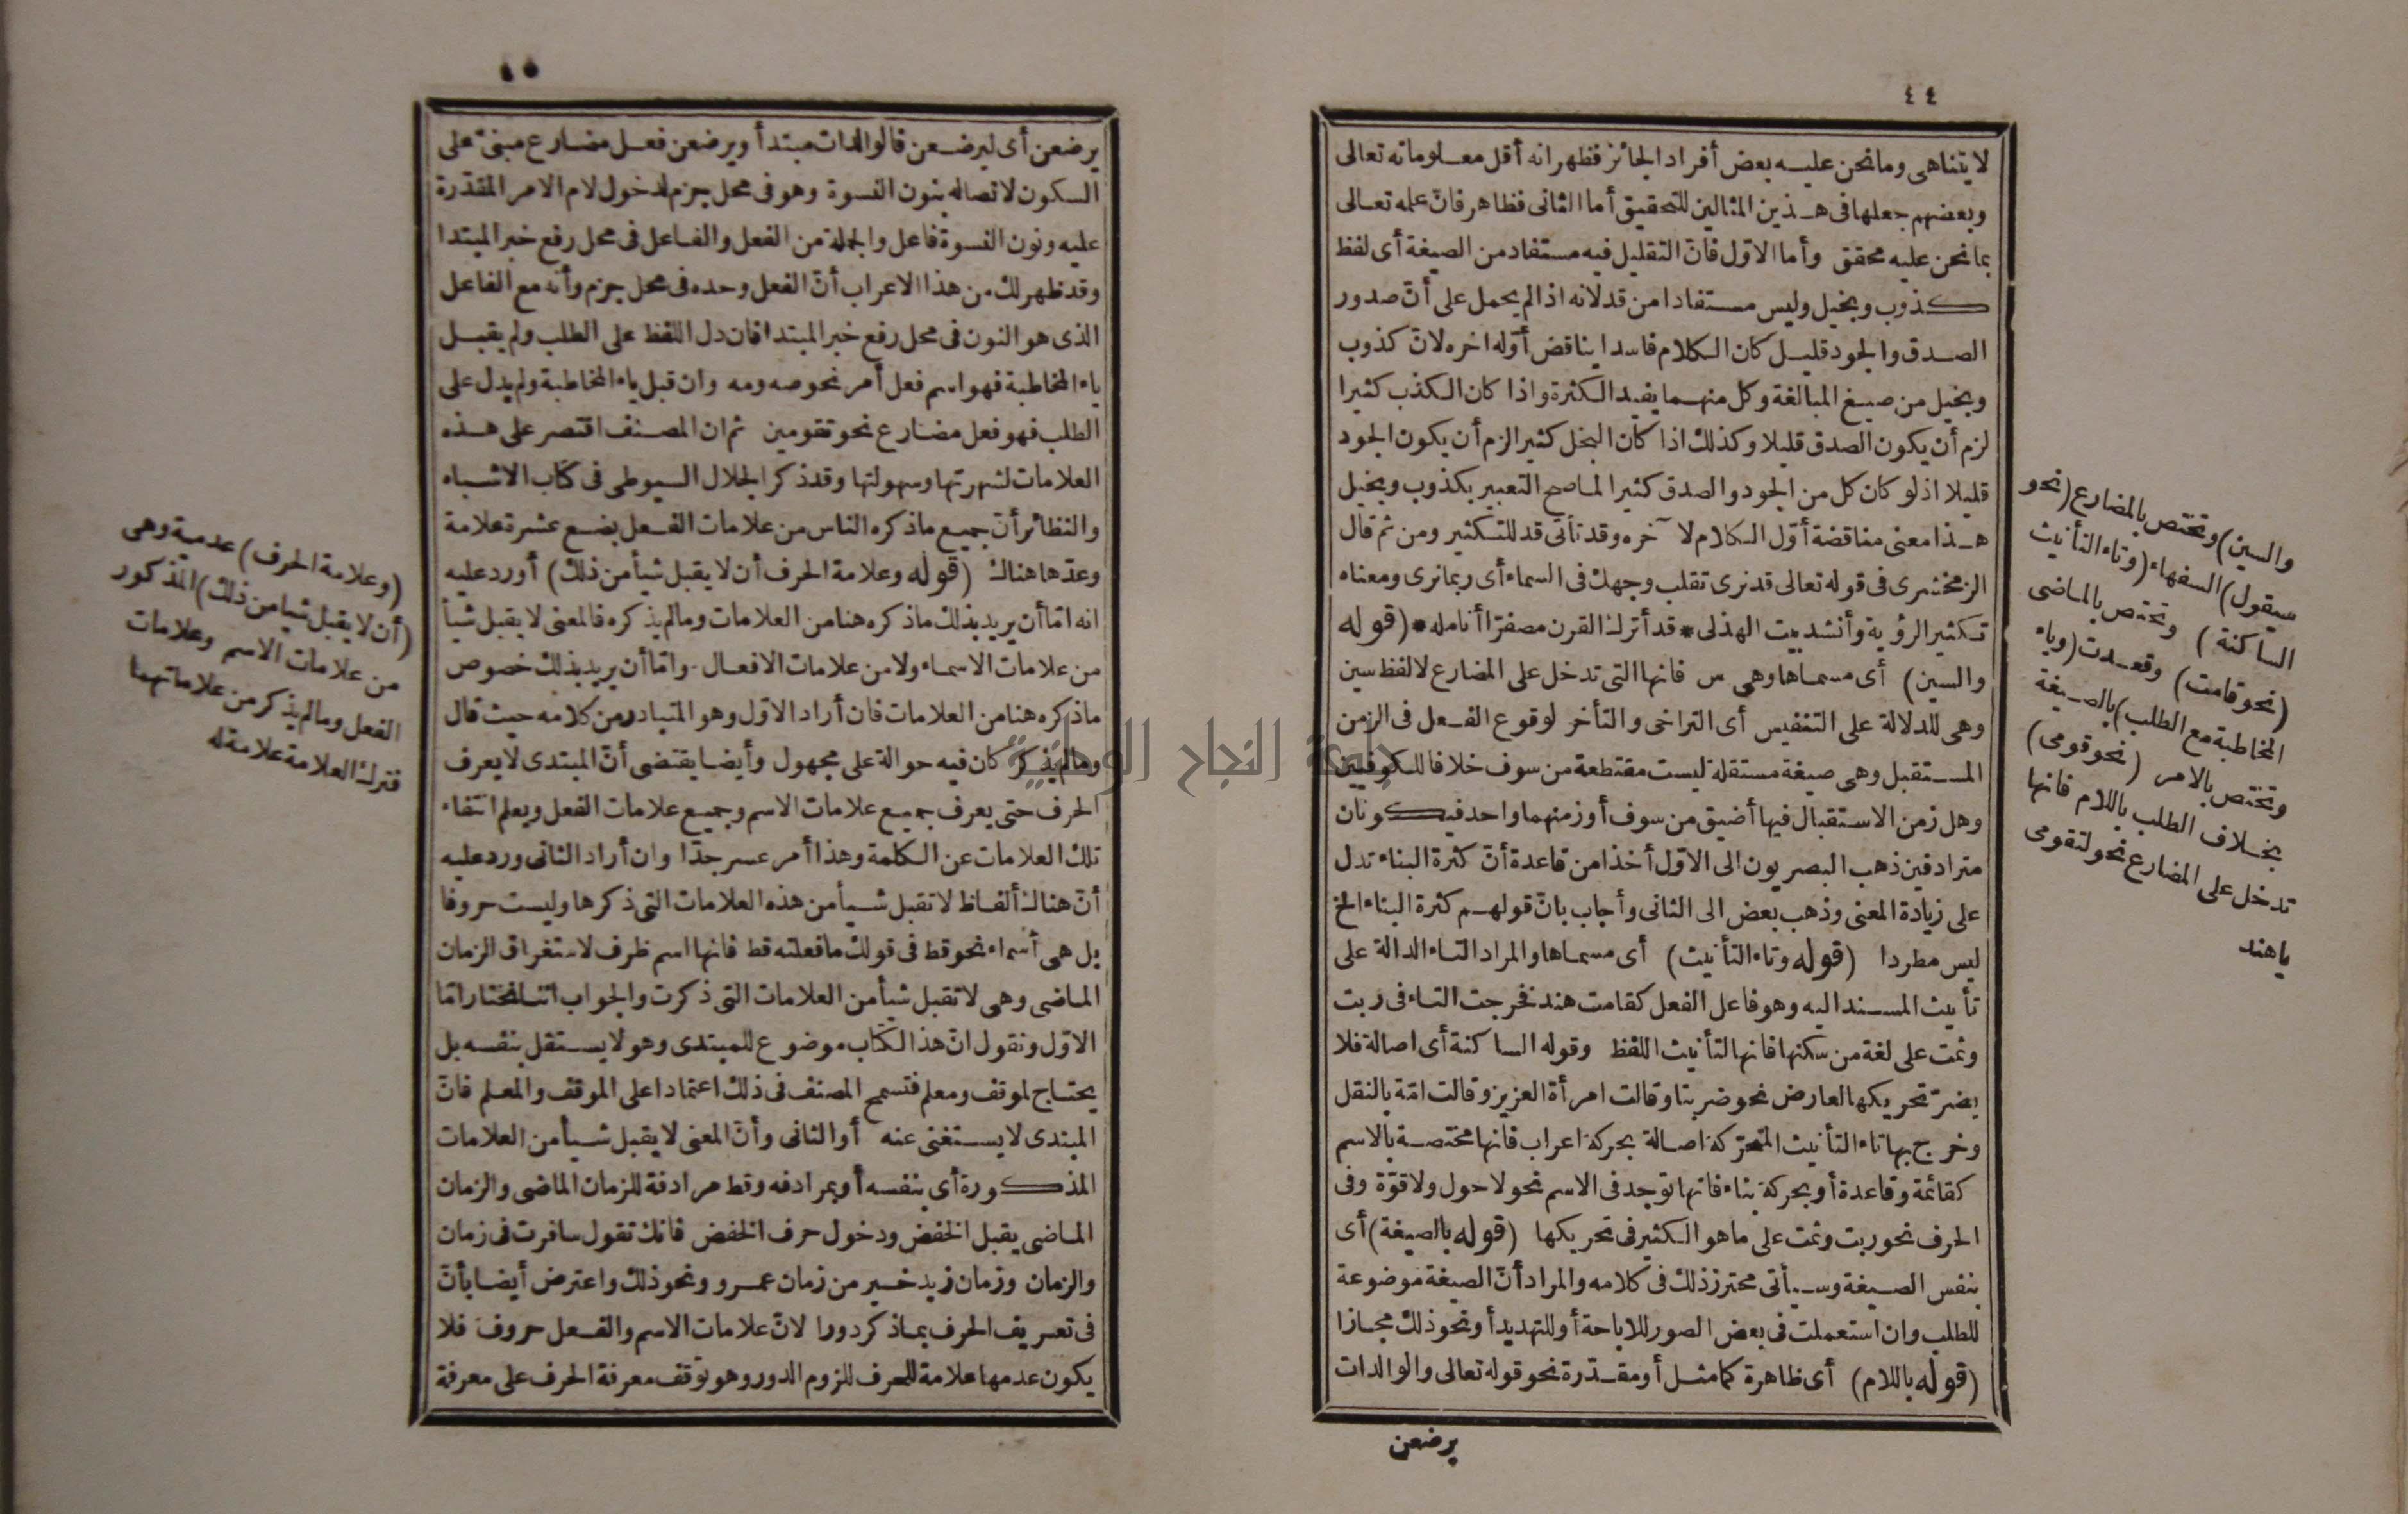 ٤٤
لا يتناهى وما نحن عليه بعض أفراد الجائز فظهر انه أقل معلوماته تعالى
وبعضهم جعلها فى هذين المثالين للتحقيق أما الثانى فظاهر فانّ علمه تعالى
بما نحن عليه محقق وأما الاوّل فانّ التقليل فيه مستفاد من الصيغة أى لفظ
كذوب وبخيل وليس مستفادا من قد لانه اذا لم يحمل على أنّ صدور
الصدق والجود قليل كان الكلام فاسدا يناقض أوّله اخره لانّ كذوب
وبخيل من صيغ المبالغة وكل منهما يفيد الكثرة واذا كان الكذب كثيرا
لزم أن يكون الصدق قليلا وكذلك اذا كان البخل كثيرا لزم أن يكون الجود
قليلا اذ لو كان كل من الجود والصدق كثيرا لما صح التعبير بكذوب وبخيل
هذا معنى مناقضة أوّل الكلام لا آخره وقد تأتى قد للتكثير ومن ثم قال
الزمخشرى فى قوله تعالى قد نرى تقلب وجهك فى السماء أى ربما نرى ومعناه
تكثير الرؤية وأنشد بيت الهذلى * قد أترك القرن مصفرّا أنامله * (قوله
والسين) أى مسماها وهى س فانها التى تدخل على المضارع لا لفظ سين
وهى للدلالة على التنفيس أى التراخى والتأخر لوقوع الفعل فى الزمن
المستقبل وهى صيغة مستقلة ليست مقتطعة من سوف خلافا للكوفيين
وهل زمن الاستقبال فيها أضيق من سوف أو زمنهما واحد فيكونان
مترادفين ذهب البصريون الى الاوّل أخذا من قاعدة أنّ كثرة البناء تدل
على زيادة المعنى وذهب بعض الى الثانى وأجاب بانّ قولهم كثرة البناء الخ
ليس مطردا (قوله وتاء التأنيث) أى مسماها والمراد التاء الدالة على
تأنيث المسند اليه وهو فاعل الفعل كقامت هند فخرجت التاء فى ربت
وثمت على لغة من سكنها فانها لتأنيث اللفظ وقوله الساكنة أى اصالة فلا
يضرّ تحريكها العارض نحو ضربتا وقالت امرأة العزيز وقالت امّة بالنقل
وخرج بها تاء التأنيث المتحرّكة اصالة بحركة اعراب فانها مختصة بالاسم
كقائمة وقاعدة أو بحركة بناء فانها توجد فى الاسم نحو لا حول ولا قوّة وفى
الحرف نحو ربت وثمت على ما هو الكثير فى تحريكها (قوله بالصيغة) أى
بنفس الصيغة وسيأتى محترز ذلك فى كلامه والمراد أنّ الصيغة موضوعة
للطلب وان استعملت فى بعض الصور للاباحة أو للتهديد أو نحو ذلك مجازا
(قوله باللام) أى ظاهرة كما مثل أو مقدّرة نحو قوله تعالى والوالدات
يرضعن
والسين) وتختص بالمضارع (نحو
سيقول) السفهاء (وتاء التأنيث
الساكنة) وتختص بالماضى
(نحو قامت) وقعدت (وياء
المخاطبة مع الطلب) بالصيغة
وتختص بالامر (نحو قومى)
بخلاف الطلب باللام فانها
تدخل على المضارع نحو لتقومى
يا هند
٤٥
يرضعن أى ليرضعن فالوالدات مبتدأ ويرضعن فعل مضارع مبنىّ على
السكون لاتصاله بنون النسوة وهو فى محل جزم لدخول لام الامر المقدّرة
عليه ونون النسوة فاعل والجملة من الفعل والفاعل فى محل رفع خبر المبتدا
وقد ظهر لك من هذا الاعراب أنّ الفعل وحده فى محل جزم وأنه مع الفاعل
الذى هو النون فى محل رفع خبر المبتدا فان دل اللفظ على الطلب ولم يقبل
ياء المخاطبة فهو اسم فعل أمر نحو صه ومه وان قبل ياء المخاطبة ولم يدل على
الطلب فهو فعل مضارع نحو تقومين ثم ان المصنف اقتصر على هذه
العلامات لشهرتها وسهولتها وقد ذكر الجلال السيوطى فى كتاب الاشباه
والنظائر أنّ جميع ما ذكره الناس من علامات الفعل بضع عشرة علامة
وعدّها هناك (قوله وعلامة الحرف أن لا يقبل شيأ من ذلك) أورد عليه
انه امّا أن يريد بذلك ما ذكره هنا من العلامات وما لم يذكره فالمعنى لا يقبل شيأ
من علامات الاسماء ولا من علامات الافعال. وامّا أن يريد بذلك خصوص
ما ذكره هنا من العلامات فان أراد الاوّل وهو المتبادر من كلامه حيث قال
وما لم يذكر كان فيه حوالة على مجهول وأيضا يقتضى أنّ المبتدى لا يعرف
الحرف حتى يعرف جميع علامات الاسم وجميع علامات الفعل ويعلم انتفاء
تلك العلامات عن الكلمة وهذا أمر عسر جدّا وان أراد الثانى ورد عليه
أنّ هناك ألفاظ لا تقبل شيأ من هذه العلامات التى ذكرها وليست حروفا
بل هى أسماء نحو قط فى قولك ما فعلته قط فانها اسم ظرف لاستغراق الزمان
الماضى وهى لا تقبل شيأ من العلامات التى ذكرت والجواب اننا نختار امّا
الاوّل ونقول انّ هذا الكتاب موضوع للمبتدى وهو لا يستقل بنفسه بل
يحتاج لموقف ومعلم فتسمح المصنف فى ذلك اعتمادا على الموقف والمعلم فانّ
المبتدى لا يستغنى عنه أو الثانى وأنّ المعنى لا يقبل شيأ من العلامات
المذكورة أى بنفسه أو بمرادفه وقط مرادفة للزمان الماضى والزمان
الماضى يقبل الخفض ودخول حرف الخفض فانك تقول سافرت فى زمان
والزمان وزمان زيد خير من زمان عمرو ونحو ذلك واعترض أيضا بأنّ
فى تعريف الحرف بما ذكر دورا لانّ علامات الاسم والفعل حروف فلا
يكون عدمها علامة للحرف للزوم الدور وهو توقف معرفة الحرف على معرفة
(وعلامة الحرف) عدمية وهى
(أن لا يقبل شيا من ذلك) المذكور
من علامات الاسم وعلامات
الفعل وما لم يذكر من علاماتهما
فترك العلامة علامة له
جامعة النجاح الوطنية